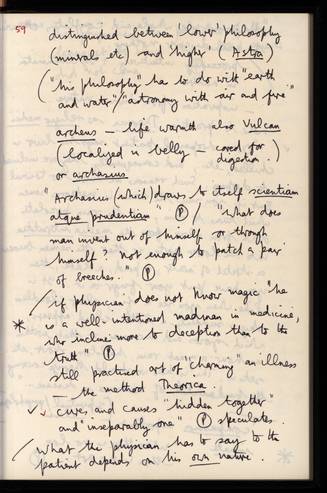 59
distinguished between 'lower' philosophy
(minerals etc) and 'higher' (Astra)
("his philosophy" has to do with "earth
and water"/"astronomy with air and fire"
archeus — life warmth also Vulcan
(localized in belly — cared for)
digestion.
or archasius
"Archasius (which) draws to itself scientiam
atque prudentiam" (P) / "What does
man invent out of himself or through
himself? Not enough to patch a pair
of breeches." (P)
/ if physician does not know magic "he
* is a well-intentioned madman in medicine,
who inclines more to deception than to the
truth" (P)
still practised art of "charming" an illness
— the method Theorica.
✓ cures and causes "hidden together"
and "inseparably one" (P) speculates.
/ What the physician has to say to the
patient depends on his own nature.